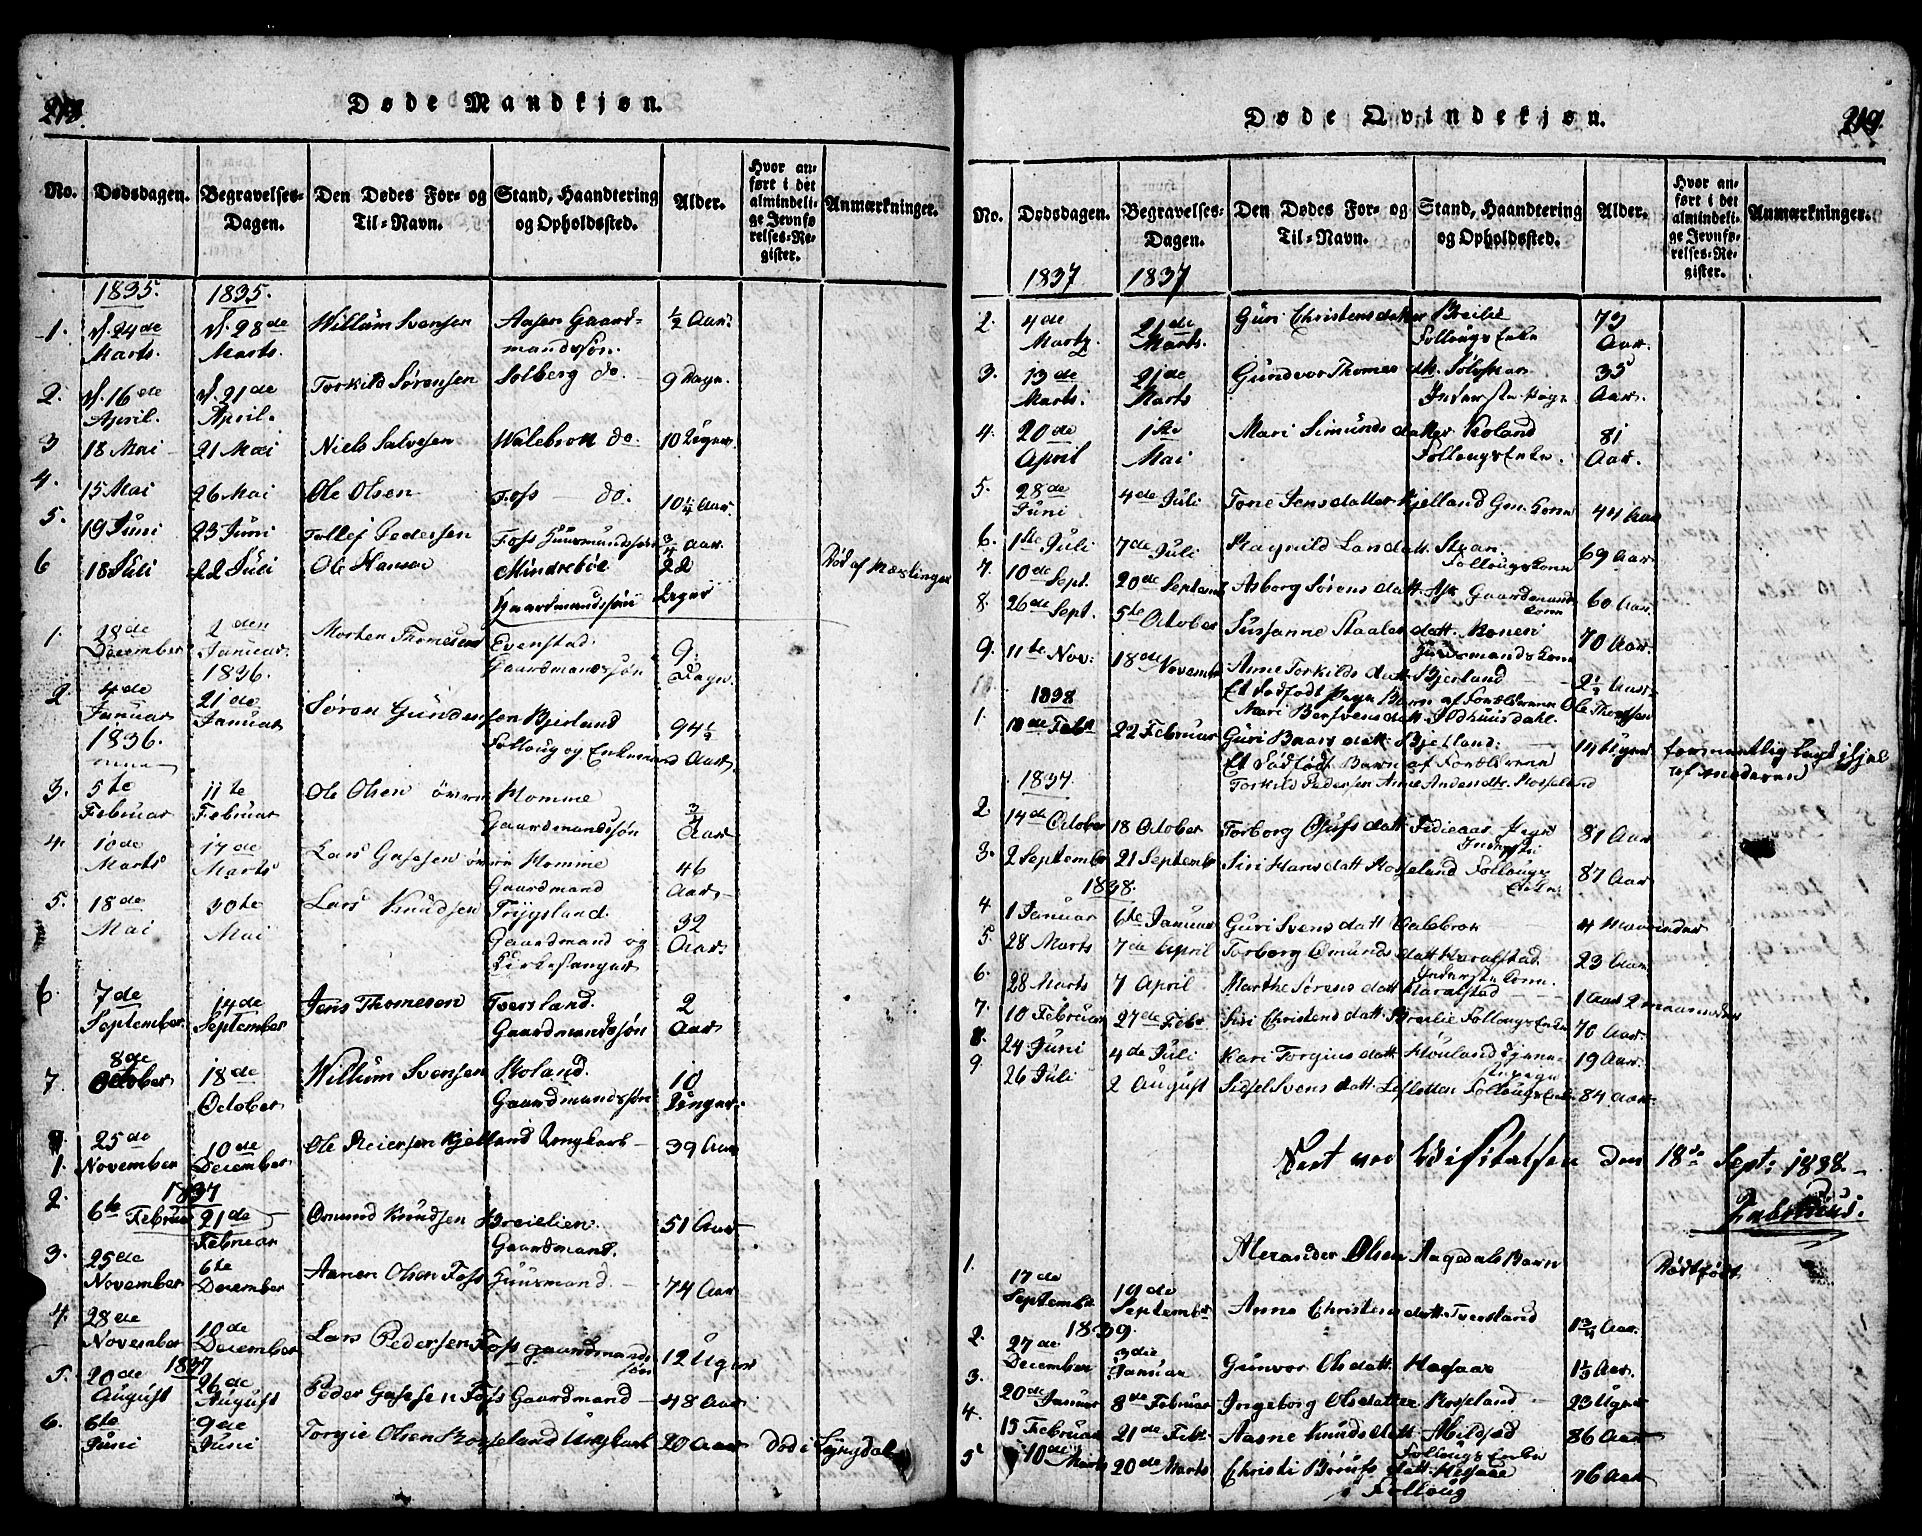 218.
Døde Mandkjøn.
No. Dødsdagen. Begravelses-Dagen. Den Dødes For- og Til-Navn. Stand, Haandtering og Opholdssted. Alder. Hvor anført i det almindelige Jevnførelses-Register. Anmærkninger.
1835. 1835.
1. d. 24de Marts. d. 28de Marts. Willum Svensen Aasen Gaardmandssøn. ½ Aar.
2. d. 16de April. d. 21de April. Torkild Sørensen Solberg do. 9 Dage.
3 18 Mai 21 Mai Niels Salvesen Walebrok do. 10 Uger.
4. 15 Mai 26 Mai Ole Olsen Foss do. 10¼ Aar.
5. 19 Juni 23 Juni Tollef Pedersen Foss Huusmandssøn ¾ Aar.
6 18 Juli 22 Juli Ole Hansen Mindrebøe Gaardmandssøn 22 Uger Død af Mæslinger
1. 28de December 2den Januar. 1836. Morten Thomesen Evenstad. Gaardmandssøn 9. Dage.
2 4de Januar 1836. 21de Januar Søren Gundersen Bjerland Follaug og Enkemand 94½ Aar.
3. 5te Februar 11te Februar Ole Olsen øvre Homme Gaardmandssøn ¾ Aar
4. 10de Marts 17de Marts Lars Gasesen øvre Homme Gaardmand 46 Aar
5. 18de Mai 30te Mai Lars Knudsen Trygsland. Gaardmand og Kirkesanger 32 Aar.
6. 7de September 14de September Jens Thomesen Tversland. Gaardmandssøn 2 Aar
7. 8de October 18de October Willum Svensen Roland. Gaardmandssøn 10 Uger.
1. 25de November 10de December Ole Reiersen Kjelland Ungkarl 39 Aar
1837
2. 6te Februar 21de Februar Omund Knudsen Breilien. Gaardmand. 51 Aar
3. 25de November 6te December Aanen Olsen Foss Huusmand 74 Aar
4. 28de November 10de December Lars Pedersen Foss gaardmands søn 12 Uger
1837
5. 20de August 26de August Peder Gasesen Foss Gaardmand 48 Aar
6. 6te Juni 9de Juni Torgie Olsen Rosseland Ungkarl 20 Aar Død i Lyngdal
219.
Døde Qvindekjøn.
No. Dødsdagen. Begravelses-Dagen. Den Dødes For- og Til-Navn. Stand, Haandtering og Opholdssted. Alder. Hvor anført i det almindelige Jevnførelses-Register. Anmærkninger.
1837 1837
2. 4de Marts. 21de Marts. Guri Christensdatter Breilie Follougs Enke 79 Aar.
3. 13de Marts. 21de Marts Gundvor Thomesdt. Inderste 35 Aar.
4. 20de April 1ste Mai Mari Simundsdatter Roland Follougs Enke. 81 Aar.
5. 28de Juni 4de Juli Tone Jensdatter Kjelland Gm. Kone 44 Aar
6. 1ste Juli 7de Juli Ragnild Follougs Kone 69 Aar
7. 10de Sept. 20de September Asborg Sørensdatt. Ask Gaardmands Kone 60 Aar.
8. 26de Sept. 5te October Susanne Staalesdatt. Huusmands Kone 70 Aar
9. 11te Nov. 18de November Anne Torkildsdatt. Bjerland 2½ Aar
10. Et dødfødt Pige Barn af Forældrene Ole Thomesen Mari Berfvensdatt.
1838
1. 10de Febr. 22 Februar Guri Baarsdatt. Bjelland. 14 Uger formentlig lagt ihjel af moderen
Et dødfødt Barn af Forældrene Torkild Pedersen Anne Andersdtr. Rosseland
1837.
2 14de October 18 October Torborg Olufsdatt. 81 Aar
3. 2 September 21 September Siri Hansdatt. Rosseland Follougs Enke. 87 Aar
1838.
4 1 Januar 6te Januar Guri Svensdatt. Valebrok 4 Maaneder
5. 28 Marts 7de April Torborg Omundsdatt Haralstad Inderste Kone. 23 Aar.
6. 28 Marts 7 April Marthe Sørensdatt Haralstad 1 Aar 2 maaneder
7. 10 Februar 27de Febr Siri Christensdatt. Breilie Follougs Enke 70 Aar.
8. 24 Juni 4de Juli Kari Torgiusdatt. 19 Aar.
9. 26 Juli 2 August Sidsel Svensdatt. Follougs Enke 84 Aar.
Seet ved Visitatsen den 18de Sept: 1838.
1. Alexander Olsen Aagedals Barn Dødfødt
17de September 19de September Anne Christensdatt. Tversland 1¾ Aar.
1839.
2. 27de December 3die Januar Gunvor Olsdatt. Hagaae 1½ Aar.
3. 20de Januar 8de Februar Ingeborg Olsdatter Rosseland 23 Uger
4. 13 Februar 21de Febr. Aasne Knudsdatt Follougs Enke 86 Aar
5 10de Marts 20de Marts Christi Børufsdatt. Hagaae i Follaug 76 Aar